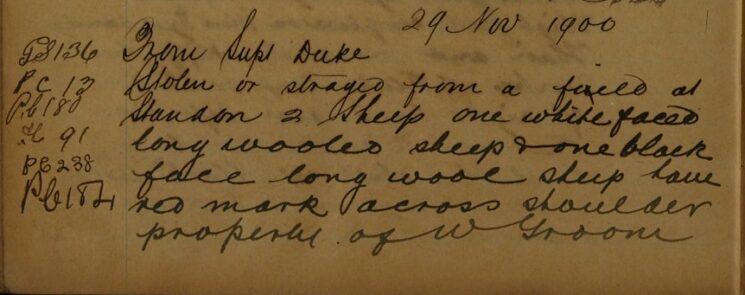 29 Nov 1900
GS136 From Supt Duke
PC 13 Stolen or strayed from a field at
PC 180 Standon 2 Sheep one white faced
91 long wooled sheep & one black
PC 238 face long wool sheep have
PC 184 red mark across shoulder
property of W Groom